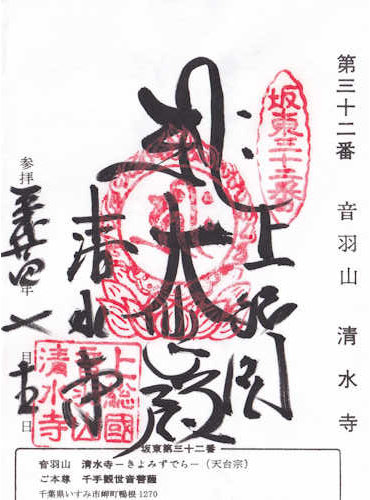 第三十二番 音羽山 清水寺
坂東三十二番
上総国
大悲殿
清水寺
参拝 平成廿四年 月 日
上総國
音羽山
清水寺
坂東第三十二番
音羽山 清水寺－きよみずでら－(天台宗)
ご本尊 千手観世音菩薩
千葉県いすみ市岬町鴨根1270